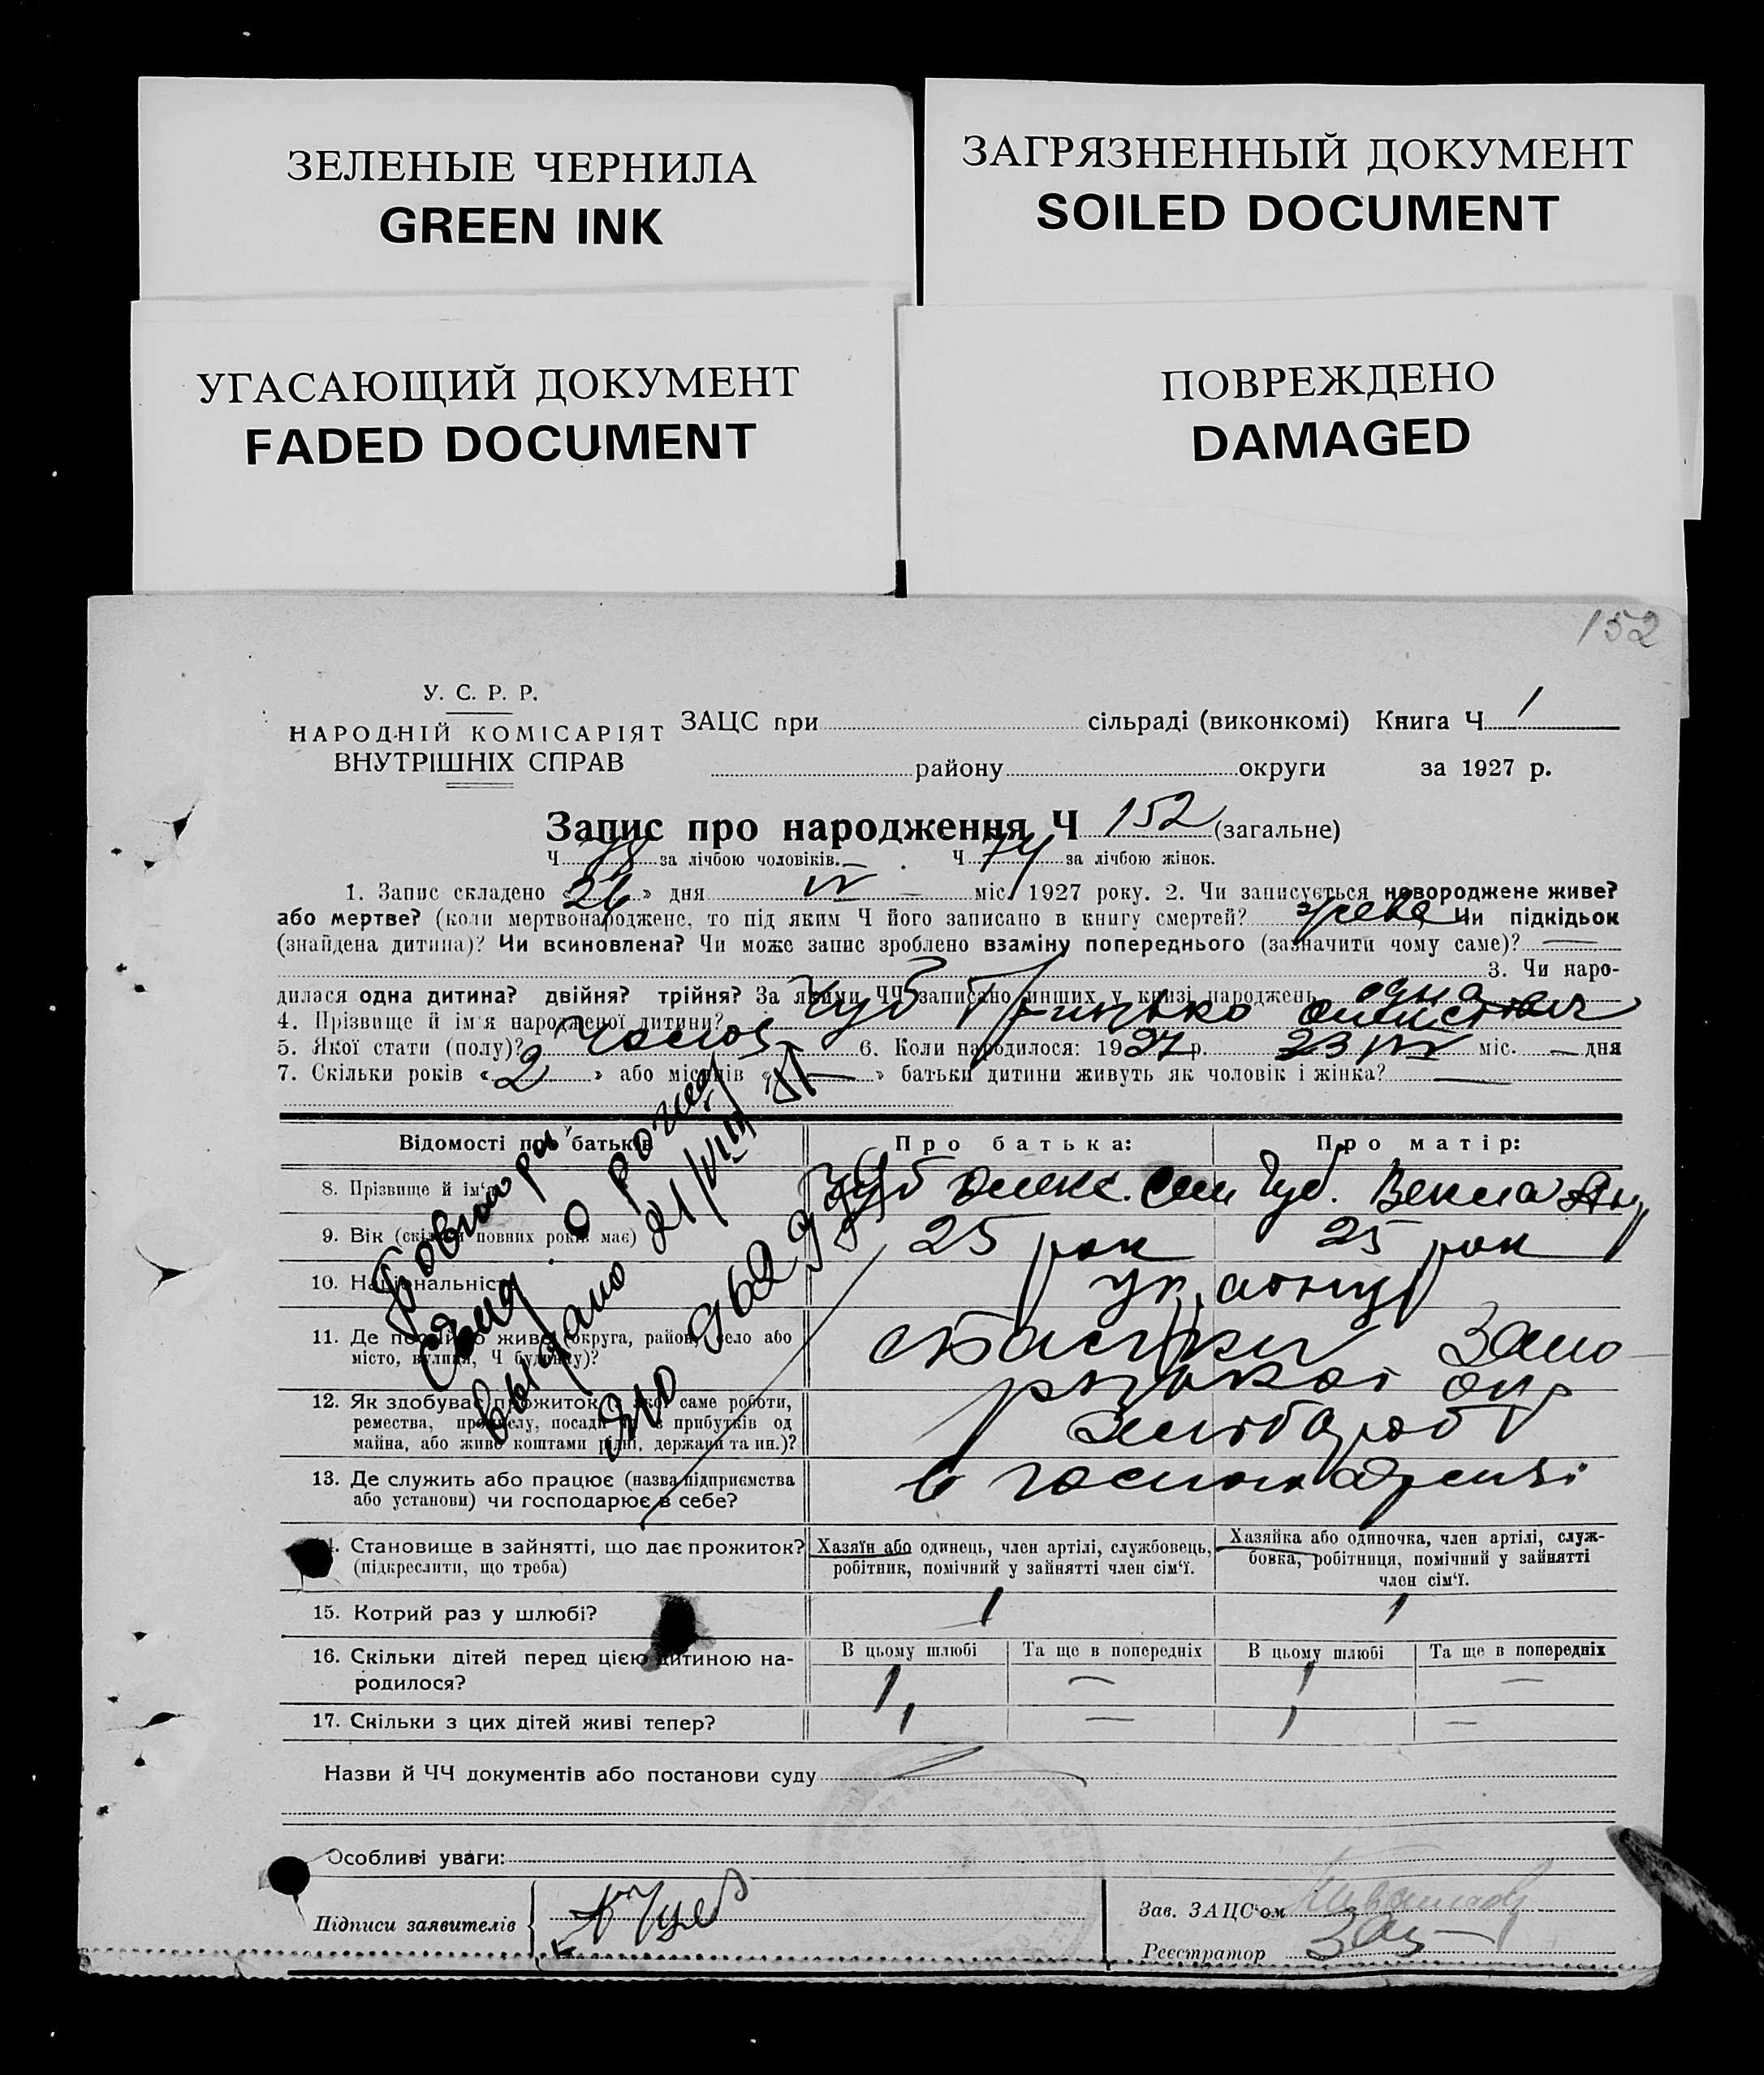 ЗЕЛЕНЫЕ ЧЕРНИЛА
GREEN INK
ЗАГРЯЗНЕННЫЙ ДОКУМЕНТ
SOILED DOCUMENT
УГАСАЮЩИЙ ДОКУМЕНТ
FADED DOCUMENT
ПОВРЕЖДЕНО
DAMAGED
152
У. С. Р. Р.
НАРОДНІЙ КОМІСАРІЯТ
ВНУТРІШНІХ СПРАВ
ЗАЦС при сільраді (виконкомі) Книга Ч 1
району округи за 1927 р.
Запис про народження Ч 152 (загальне)
Ч 78 за лічбою чоловіків. Ч 74 за лічбою жінок.
1. Запис складено « » дня міс. 1927 року. 2. Чи записується новороджене живе?
або мертве? (коли мертвонароджене, то під яким Ч його записано в книгу смертей? живе, Чи підкідьок
(знайдена дитина)? Чи всиновлена? Чи може запис зроблено взаміну попереднього (зазначити чому саме)? —
3. Чи наро-
дилася одна дитина? двійня? трійня? За якими ЧЧ записано инших у книзі народжень одна
4. Прізвище й ім'я народженої дитини? Чуб Грицько
5. Якої стати (полу)? 6. Коли народилося: 1927 р. 23 міс. — дня
7. Скільки років «2» або місяців «—» батьки дитини живуть як чоловік і жінка? —
Відомості про батьків
Про батька:
Про матір:
8. Прізвище й ім'я
Чуб Олекс. Сем
Чуб. Векла
9. Вік (скільки повних років має)
25 рок
25 рок
10. Національність
укр
11. Де постійно живе (округа, район, село або
місто, вулиця, Ч будинку)?
Запо
різької окр
12. Як здобуває прожиток (з якої саме роботи,
ремества, промислу, посади чи з прибутків од
майна, або живе коштами рідні, держави та ин.)?
хлібороб
13. Де служить або працює (назва підприємства
або установи) чи господарює в себе?
в
14. Становище в зайнятті, що дає прожиток?
(підкреслити, що треба)
Хазяїн або одинець, член артілі, службовець,
робітник, помічний у зайнятті член сім'ї.
Хазяйка або одиночка, член артілі, служ-
бовка, робітниця, помічний у зайнятті
член сім'ї.
15. Котрий раз у шлюбі?
1
1
16. Скільки дітей перед цією дитиною на-
родилося?
В цьому шлюбі
Та ще в попередніх
В цьому шлюбі
Та ще в попередніх
1
—
1
—
17. Скільки з цих дітей живі тепер?
1
—
1
—
Повторн
Свид. о рожд
выдано 21/VIII
Назви й ЧЧ документів або постанови суду
Особливі уваги:
Підписи заявителів
Зав. ЗАЦС'ом
Реєстратор